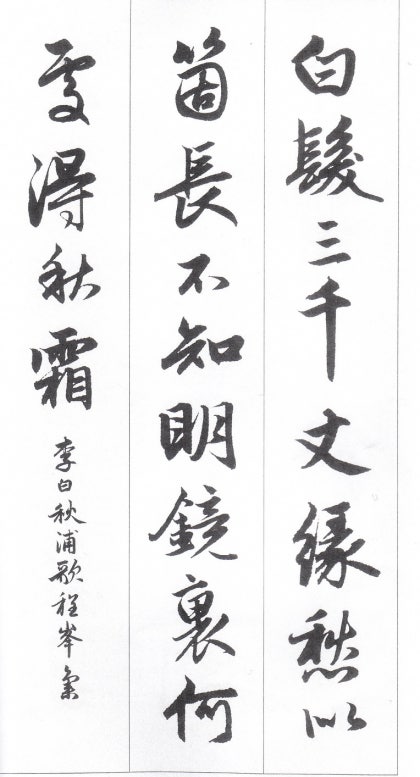 白髮三千丈緣愁以
箇長不知明鏡裏何
處得秋霜
李白秋浦歌程峯